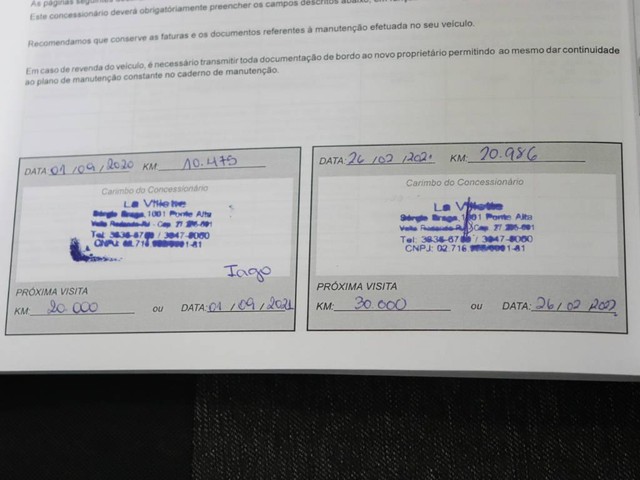 As páginas
Este concessionário deverá obrigatóriamente preencher os campos descritos abaixo,
Recomendamos que conserve as faturas e os documentos referentes à manutenção efetuada no seu veículo.
Em caso de revenda do veículo, é necessário transmitir toda documentação de bordo ao novo proprietário permitindo ao mesmo dar continuidade
ao plano de manutenção constante no caderno de manutenção.
DATA: 01/09/2020 KM: 10.475
Carimbo do Concessionário
La Villette
Sérgio Braga, 1001 Ponte Alta
Volta Redonda-RJ - Cep. 27
Tel: 3047-8060
CNPJ: 02.716 -81
Iago
PRÓXIMA VISITA
KM: 20.000 ou DATA: 01/09/2021
DATA: 26/02/2021 KM: 20.986
Carimbo do Concessionário
La Villette
Sérgio Braga, 1001 Ponte Alta
Volta Redonda-RJ Cep. 27
Tel: / 3047-8060
CNPJ: 02.716 -81
PRÓXIMA VISITA
KM: 30.000 ou DATA: 26/02/2022